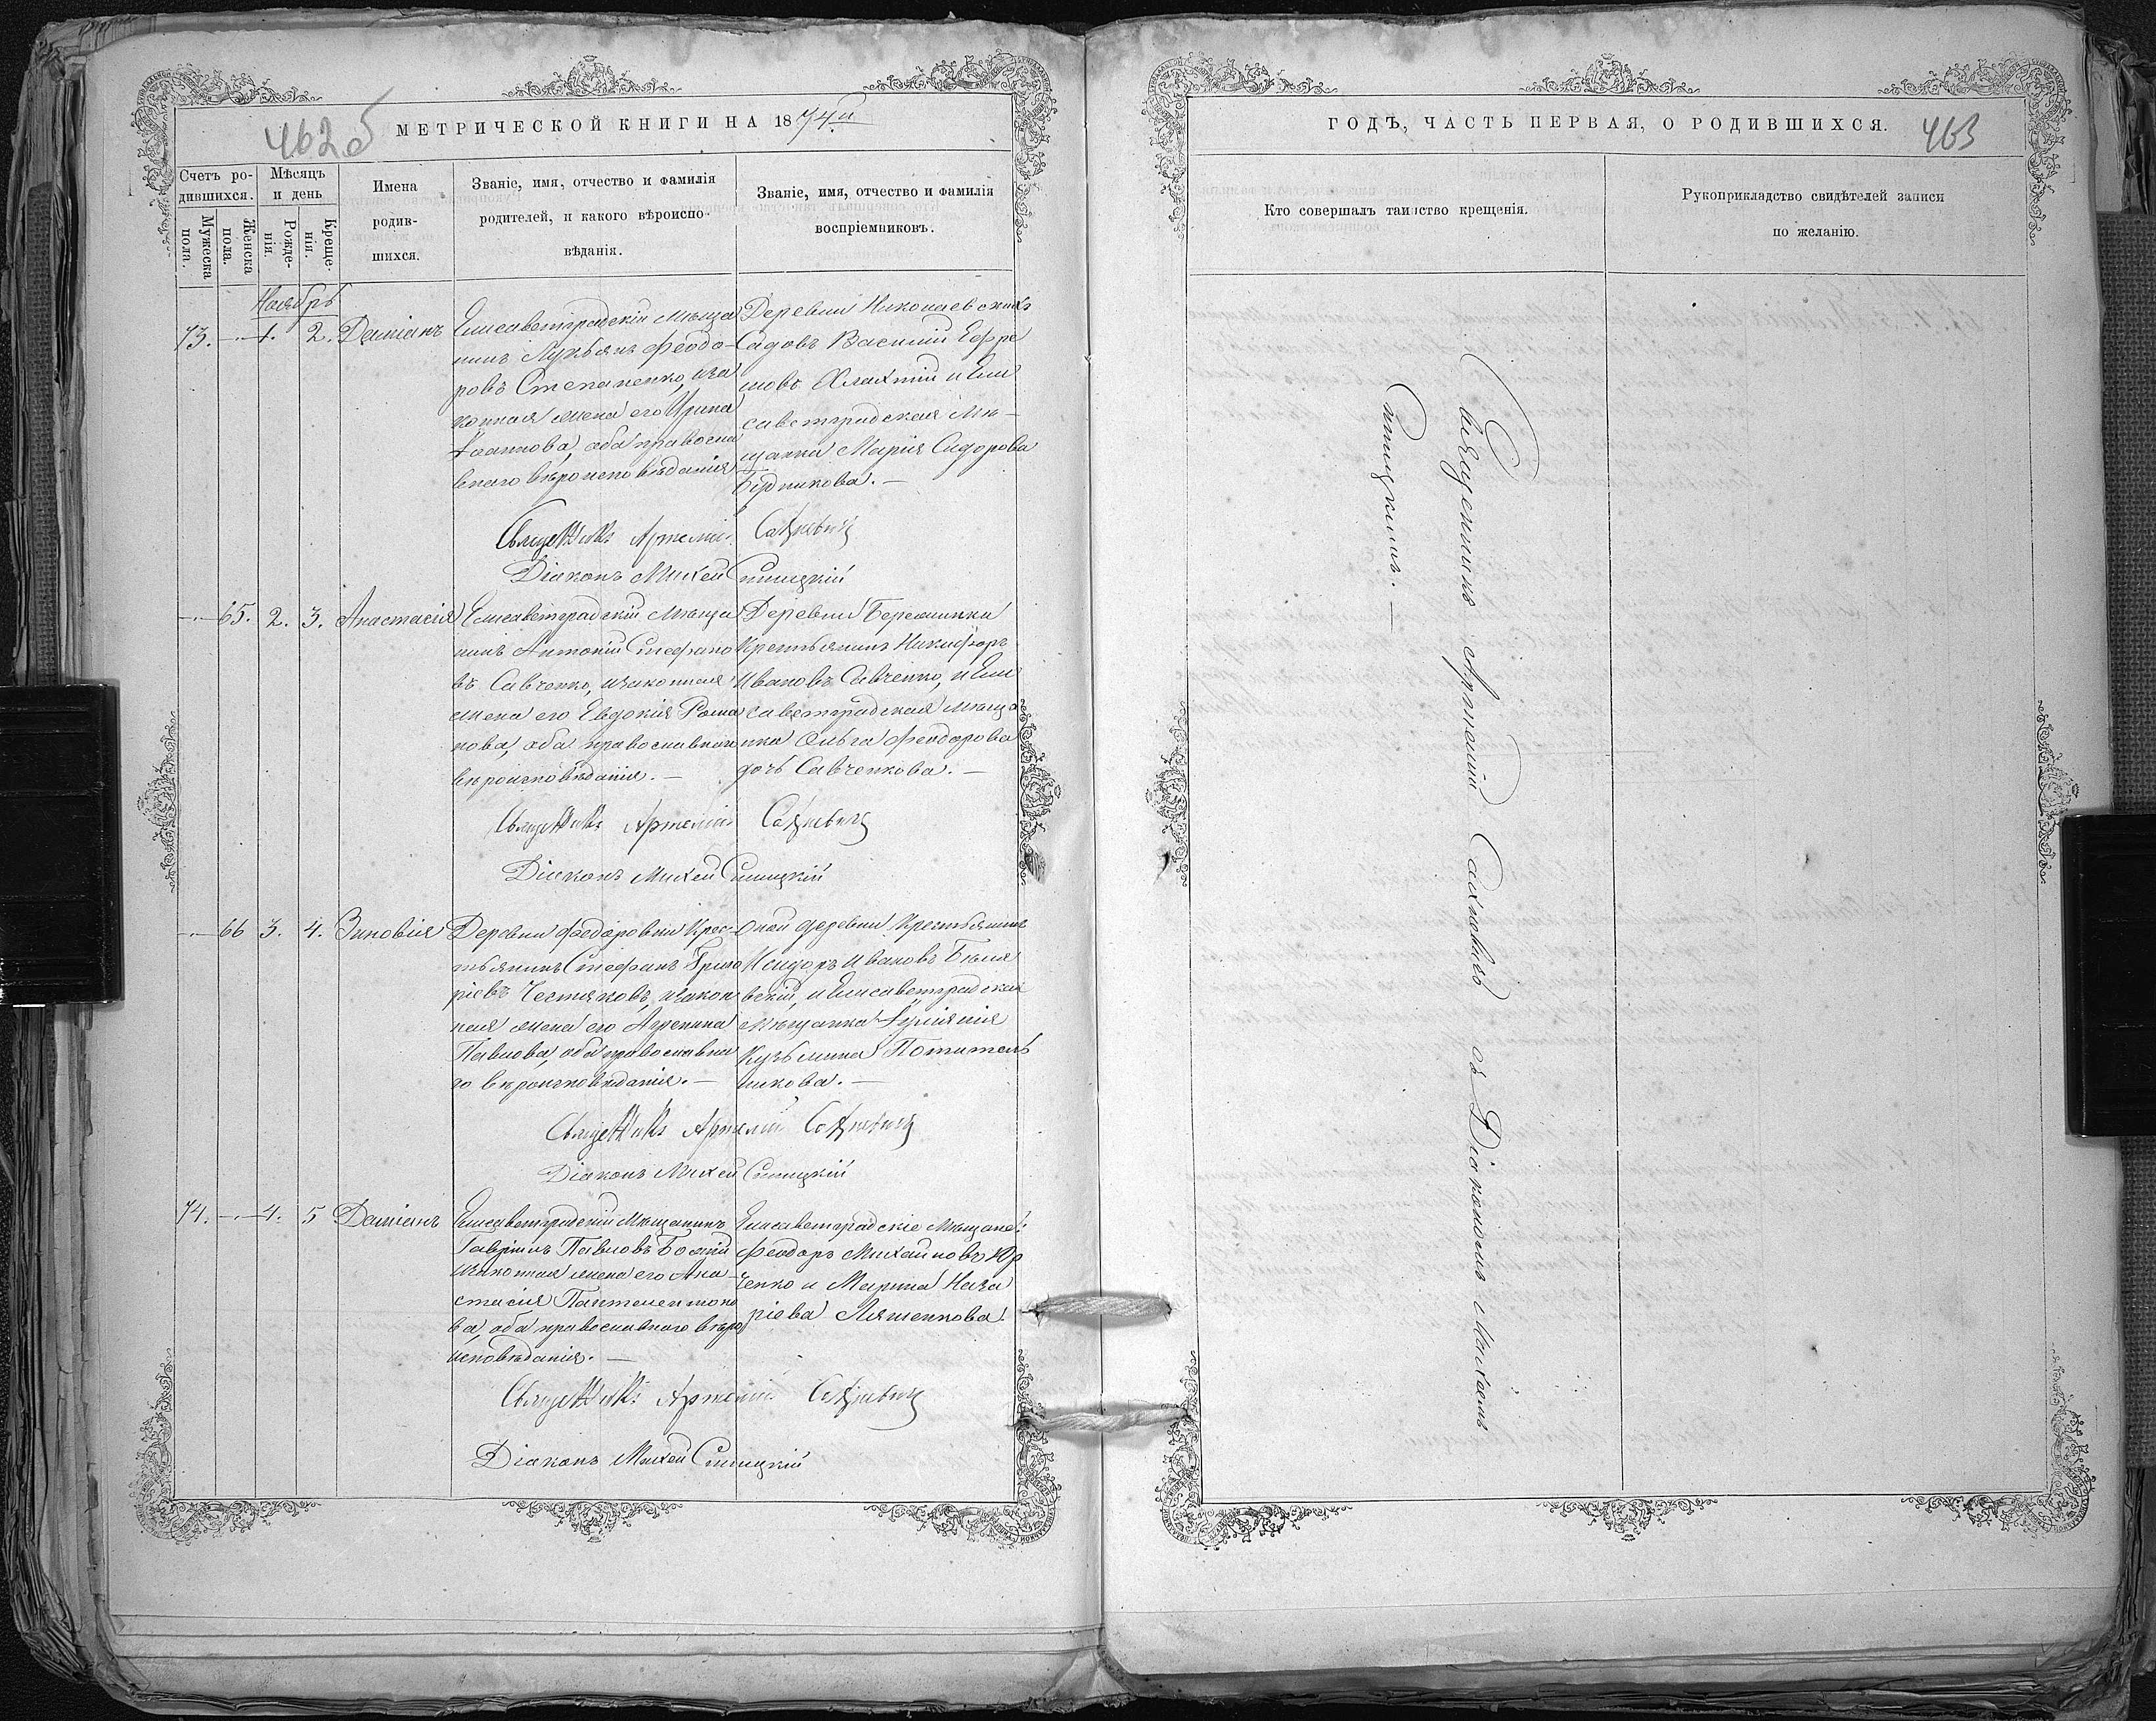 462 б
МЕТРИЧЕСКОЙ КНИГИ НА 1874й
Счетъ ро-
дившихся.
Мужеска
пола.
Женска
пола.
Мѣсяцъ
и день
Рожде-
нія.
Креще-
нія.
Имена
родив-
шихся.
Званіе, имя, отчество и фамилія
родителей, и какого вѣроиспо-
вѣданія.
Званіе, имя, отчество и фамилія
воспріемниковъ.
Ноябрь
73. 1. 2. Даміанъ
Елисаветградскій Мѣща
нинъ Лукьянъ Феодо-
ровъ Степаненко, иза
конная жена его Ирина
Іоаннова, оба правосла
внаго вѣроисповѣданія
Деревни Николаевскихъ
Садовъ Василій Ефре
мовъ и Ели
саветградская Мѣ-
щанка Марія Сидорова
Бѣдникова. —
Священникъ Артемій Сахневичъ
Діаконъ Михей Сницкій
65. 2. 3. Анастасія
Елисаветградскій Мѣща
нинъ Антоній Стефано
въ Савченко, изаконная
жена его Евдокія Рома
нова, оба православнаго
вѣроисповѣданія. —
Деревни Бережинки
Крестьянинъ Никифоръ
Ивановъ Савченко, и Ели
саветградская мѣща
нка Ольга Феодорова
дочь Савченкова. —
Священникъ Артемій Сахневичъ
Діаконъ Михей Сницкій
66 3. 4. Зиновія
Деревни Федоровки Крес-
тьянинъ Стефанъ Григо
ріевъ Честяковъ, изакон
ная жена его Агрепина
Павлова, оба православна
го вѣроисповѣданія. —
Оной деревни Крестьянинъ
Исидоръ Ивановъ Бѣля
вскій, и Елисаветградская
Мѣщанка Іуліянія
Кузьмина Потитель
никова. —
Священникъ Артемій Сахневичъ
Діаконъ Михей Сницкій
74. 4. 5 Даміанъ
Елисаветградскій Мѣщанинъ
Гавріилъ Павловъ
изаконная жена его Ана-
стасія Пантелеимоно
ва, оба православнаго вѣро
исповѣданія. —
Елисаветградскіе Мѣщане:
Феодоръ Михайловъ Юр
ченко и Марина Наза
ріева Ляшенкова.
Священникъ Артемій Сахневичъ
Діаконъ Михей Сницкій
ГОДЪ, ЧАСТЬ ПЕРВАЯ, О РОДИВШИХСЯ.
463
Кто совершалъ таинство крещенія.
Рукоприкладство свидѣтелей записи
по желанію.
Священникъ Артемій Сахневичъ съ Діакономъ Михеемъ
Сницкимъ. —